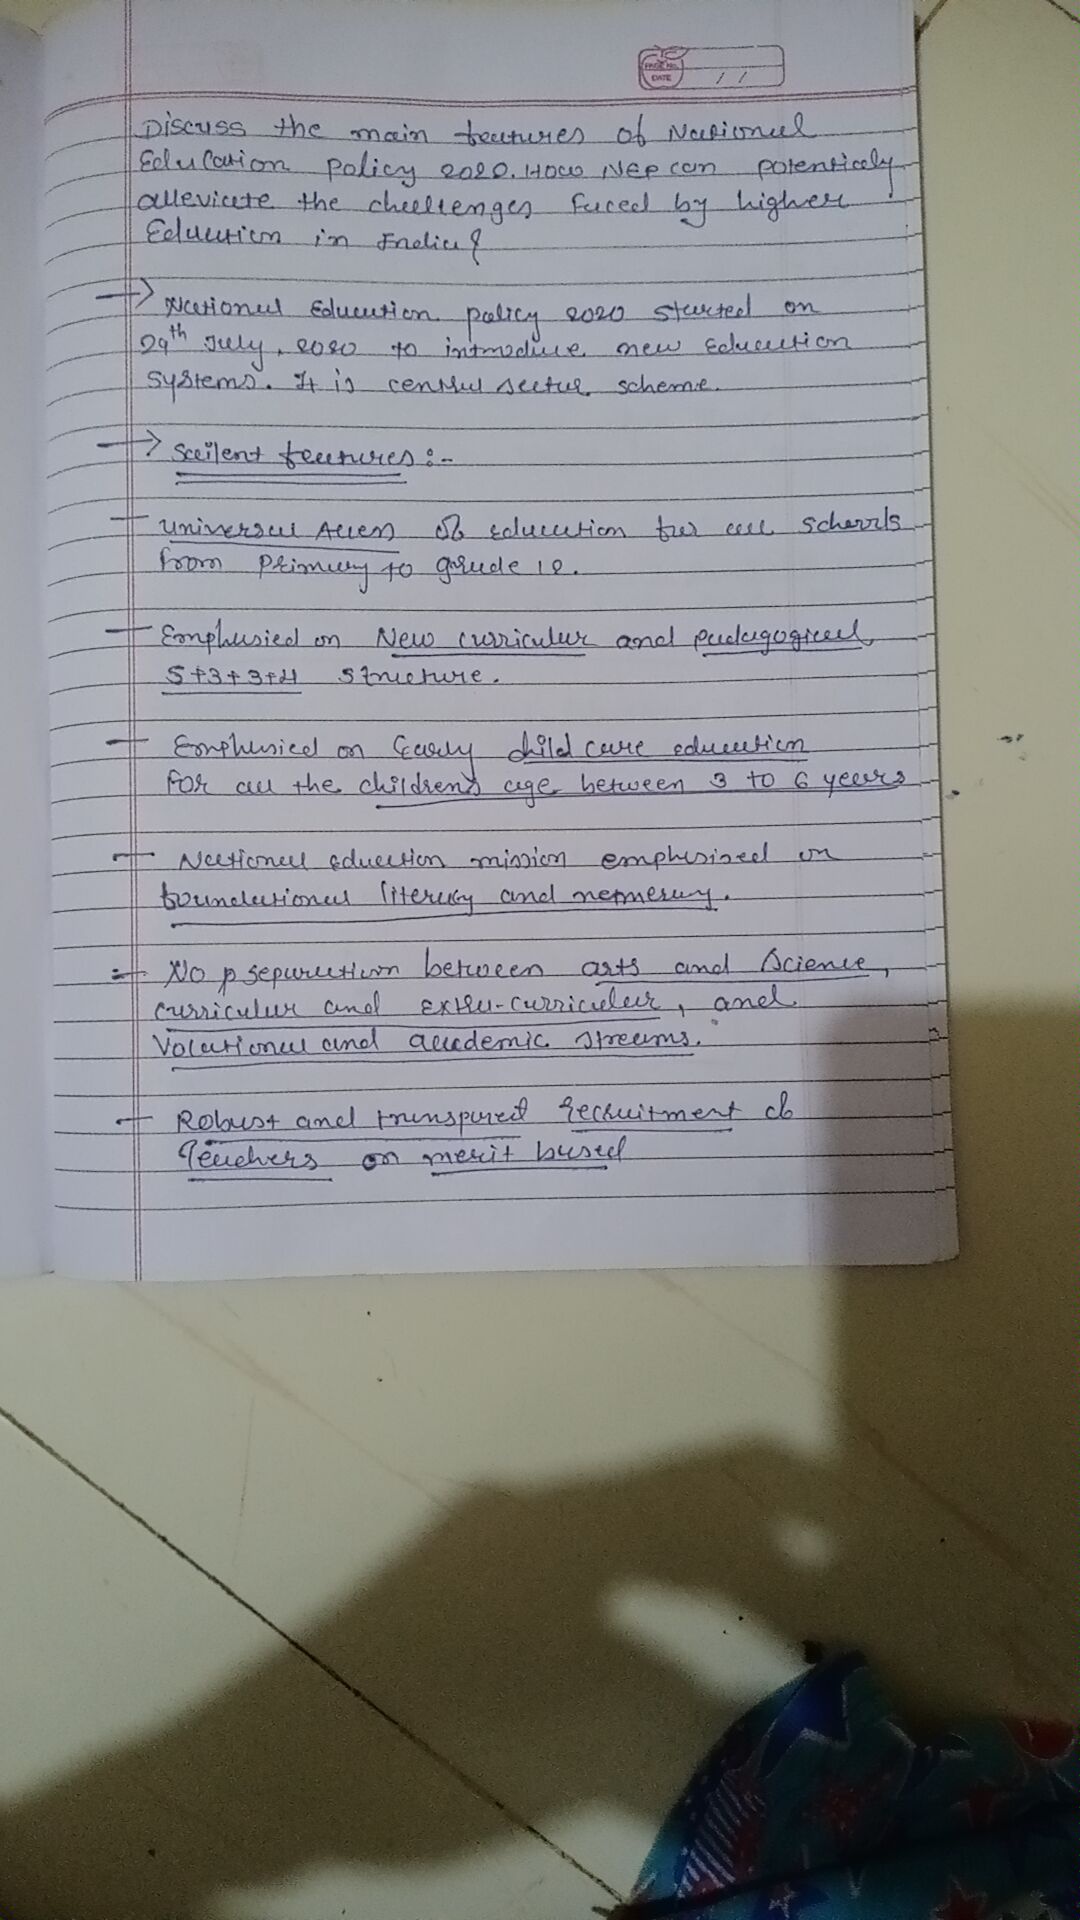 PAGE No.
DATE / /
Discuss the main features of National
Education policy 2020. How NEP can potentially
alleviate the challenges faced by higher
Education in India?
→ National Education policy 2020 started on
29th July, 2020 to introduce new education
systems. It is central sector scheme.
→ Sailent features :-
- universal Access of education for all schools
from primary to grade 12.
- Emphasied on New curricular and padagogical
5+3+3+4 structure.
- Emphasied on Early child care education
for all the children's age between 3 to 6 years
- National education mission emphasized on
foundational literacy and nemeracy.
- No p separation between arts and science,
curricular and extra-curricular, and
vocational and academic streams.
- Robust and transpared recruitment of
Teachers on merit based